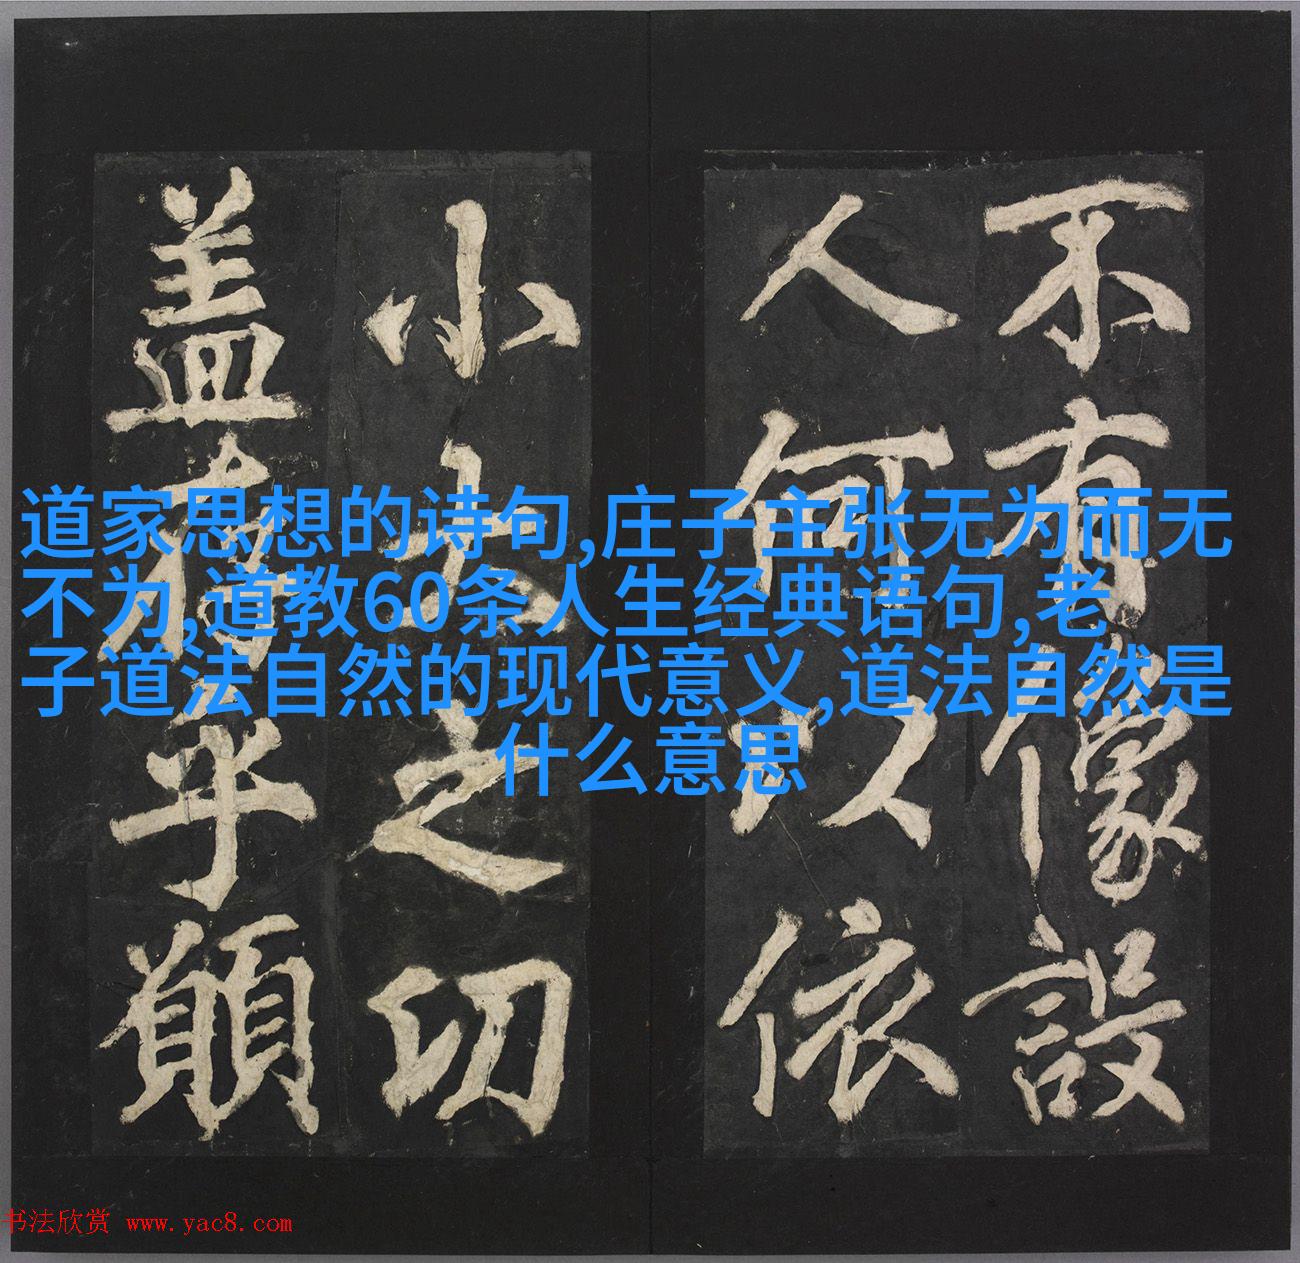 不有像設
人何以依
小大之
盖有乎
道家思想的诗句,庄子主张无为而无
不为,道教60条人生经典语句,老
子道法自然的现代意义,道法自然是
什么意思
书法欣赏 www.yac8.com